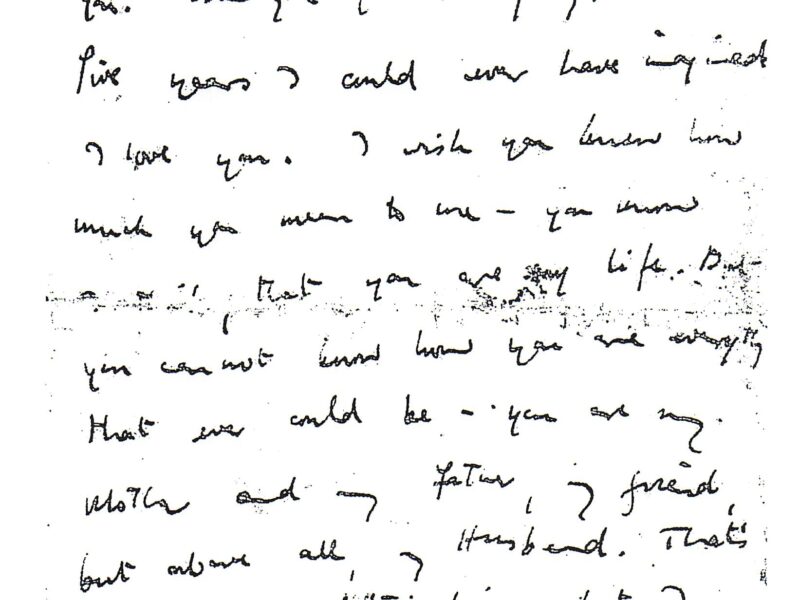 you.
five years I could ever have imagined
I love you. I wish you knew how
much you mean to me – you know
that you are my life. But
you cannot know how you are everything
that ever could be – you are my
Mother and my father, my friend,
but above all, my Husband. That's